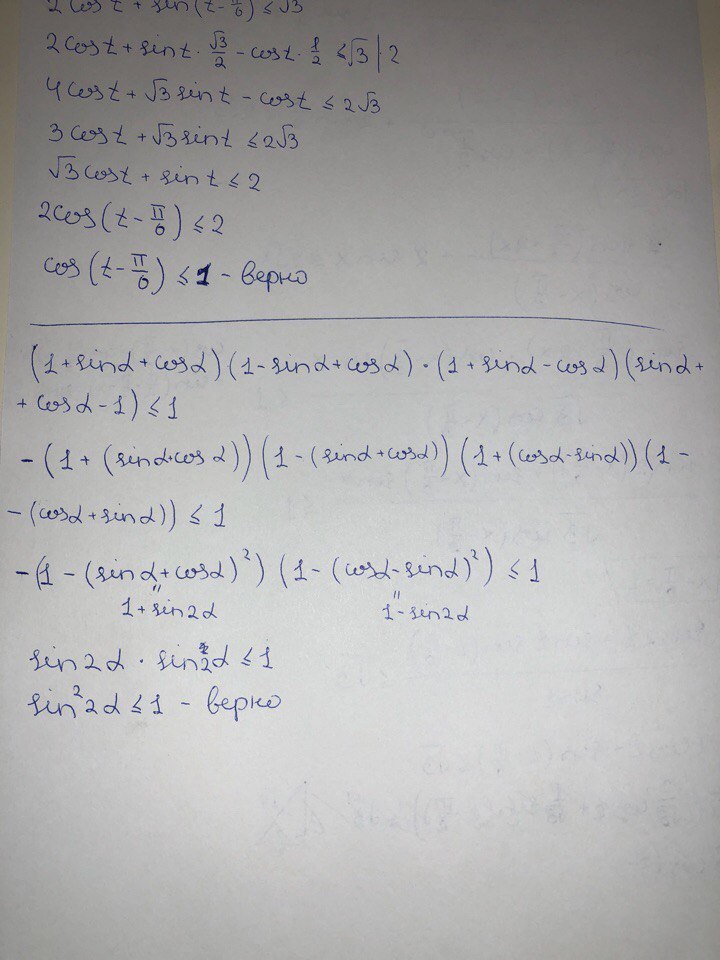 2cost + sin(t-π/6) ≤ √3
2cost + sint · √3/2 - cost · 1/2 ≤ √3 | 2
4cost + √3 sint - cost ≤ 2√3
3cost + √3 sint ≤ 2√3
√3 cost + sint ≤ 2
2cos(t - π/6) ≤ 2
cos(t - π/6) ≤ 1 - верно
(1 + sinα + cosα)(1 - sinα + cosα) · (1 + sinα - cosα)(sinα +
+ cosα - 1) ≤ 1
- (1 + (sinα + cosα))(1 - (sinα + cosα))(1 + (cosα - sinα))(1 -
- (cosα + sinα)) ≤ 1
- (1 - (sinα + cosα)²)(1 - (cosα - sinα)²) ≤ 1
" "
1 + sin2α 1 - sin2α
sin2α · sin2α ≤ 1
sin²2α ≤ 1 - верно